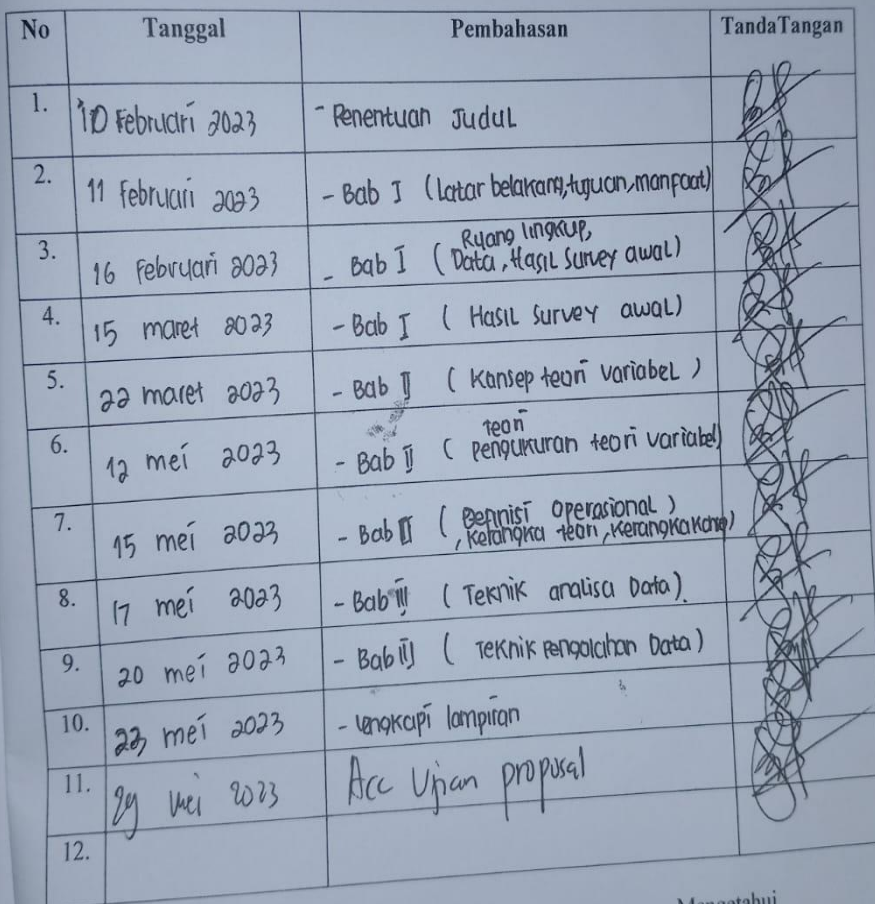 No Tanggal Pembahasan TandaTangan
1. 10 Februari 2023 - Penentuan Judul
2. 11 Februari 2023 - Bab I (Latar belakang, tujuan, manfaat)
Ruang lingkup,
3. 16 Februari 2023 - Bab I (Data, Hasil Survey awal)
4. 15 maret 2023 - Bab I ( Hasil Survey awal)
5. 22 maret 2023 - Bab II ( Konsep teori variabel )
teori
6. 12 mei 2023 - Bab II ( pengukuran teori variabel)
7. 15 mei 2023 - Bab II ( Definisi Operasional )
, Kerangka teori,
8. 17 mei 2023 - Bab III ( Teknik analisa Data).
9. 20 mei 2023 - Bab III ( Teknik Pengolahan Data )
10. mei 2023 - Lengkapi lampiran
11. 29 Mei 2023 Acc Ujian proposal
12.
Mengetahui